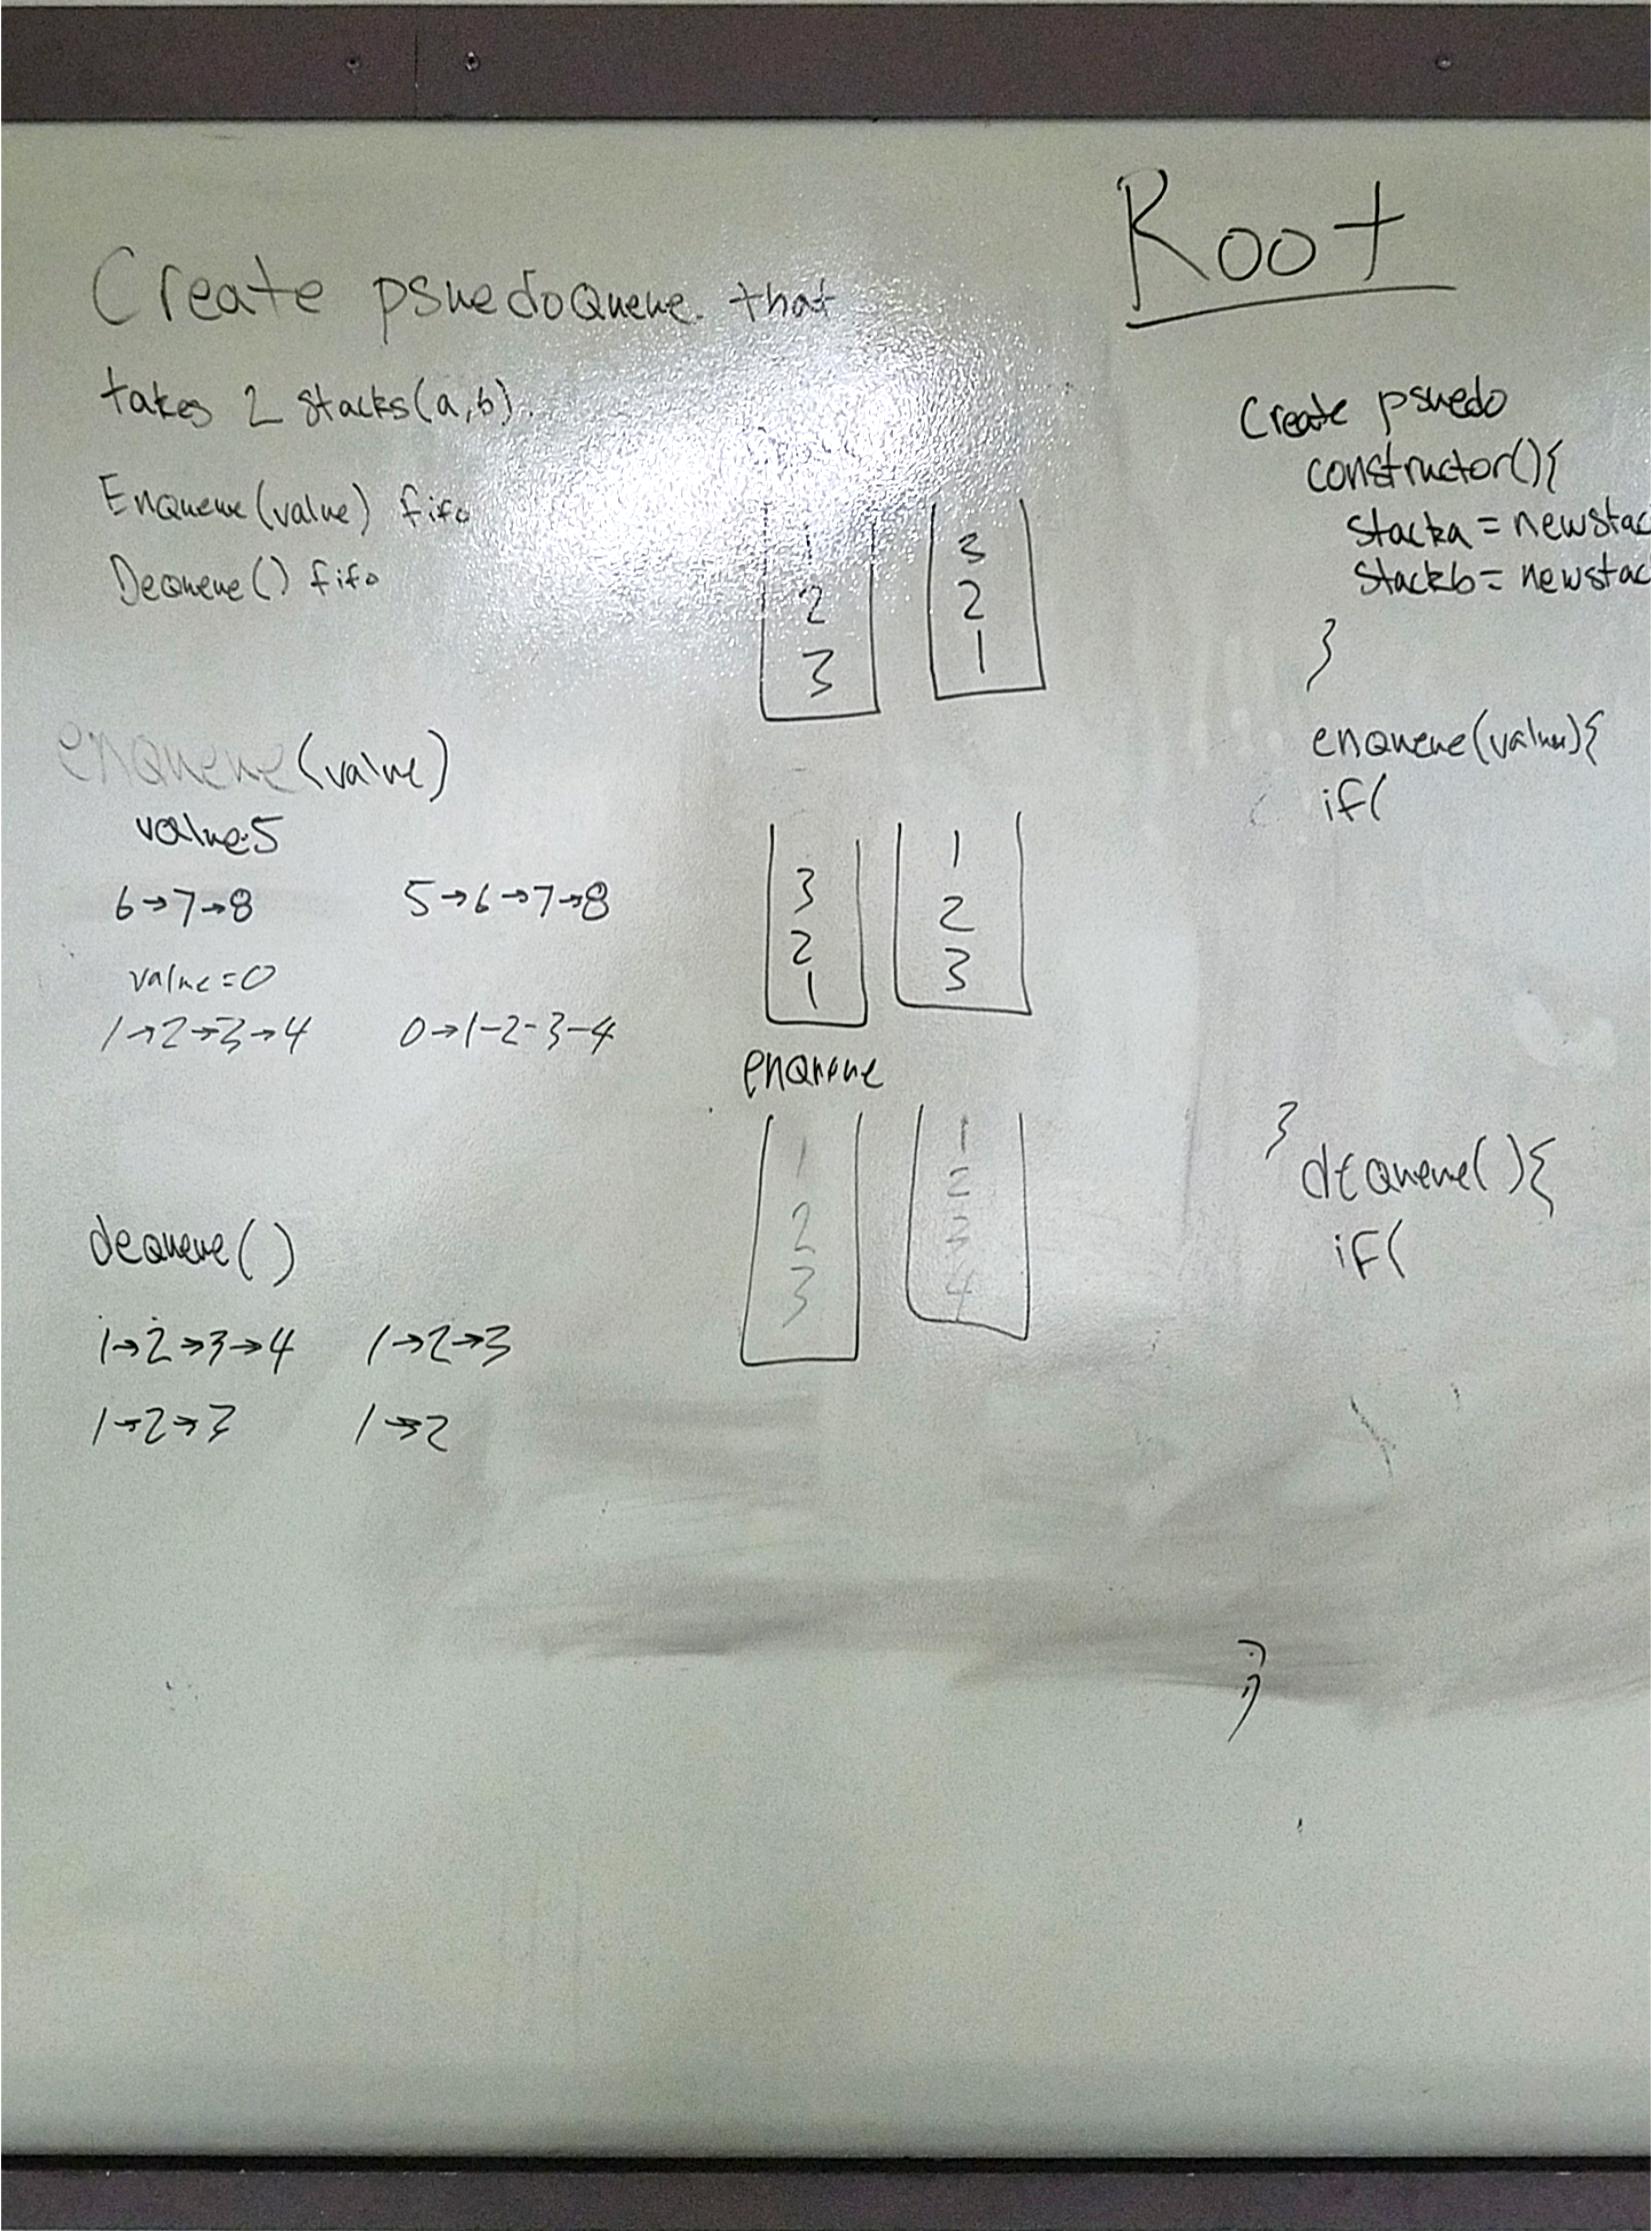 Root
Create psuedoQueue that
takes 2 stacks(a,b).
Enqueue(value) fifo
Dequeue() fifo
enqueue(value)
value:5
6→7→8 5→6→7→8
value=0
1→2→3→4 0→1-2-3-4
dequeue()
1→2→3→4 1→2→3
1→2→3 1→2
1 3
2 2
3 1
3 1
2 2
1 3
enqueue
1 1
2 2
3 3
4
Create psuedo
constructor(){
stacka = newstac
stackb = newstac
}
enqueue(value){
if(
}
dequeue(){
if(